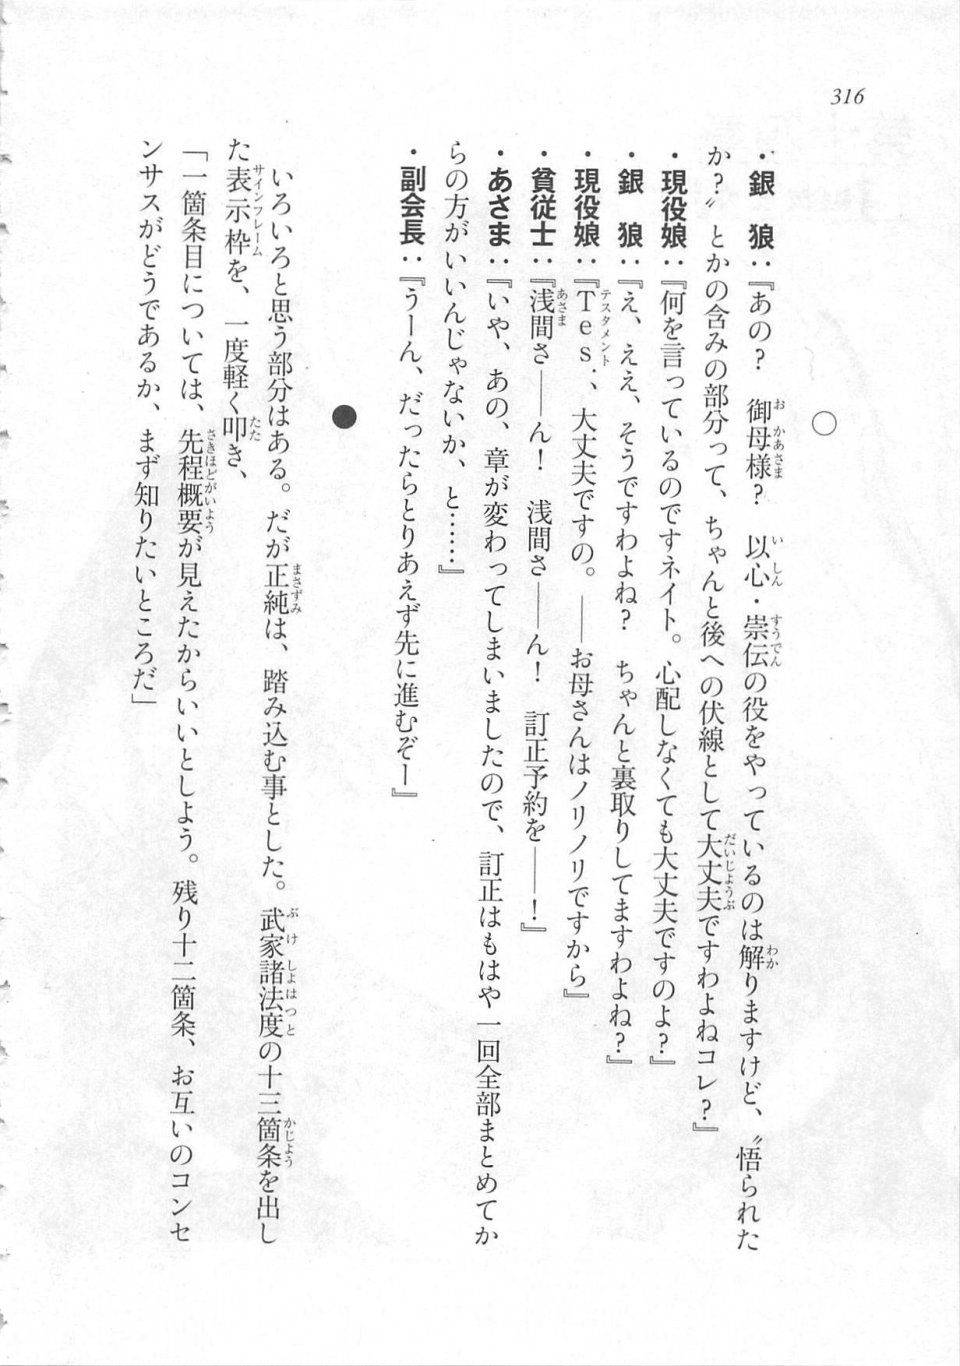 316
○
・銀　狼：『あの？　御母様？　以心・崇伝の役をやっているのは解りますけど、〝悟られた
か？〟とかの含みの部分って、ちゃんと後への伏線として大丈夫ですわよねコレ？』
・現役娘：『何を言っているのですネイト。心配しなくても大丈夫ですのよ？』
・銀　狼：『え、ええ、そうですわよね？　ちゃんと裏取りしてますわよね？』
・現役娘：『Ｔｅｓ．、大丈夫ですの。――お母さんはノリノリですから』
・貧従士：『浅間さ――ん！　浅間さ――ん！　訂正予約を――！』
・あさま：『いや、あの、章が変わってしまいましたので、訂正はもはや一回全部まとめてか
らの方がいいんじゃないか、と……』
・副会長：『うーん、だったらとりあえず先に進むぞー』
●
いろいろと思う部分はある。だが正純は、踏み込む事とした。武家諸法度の十三箇条を出し
た表示枠を、一度軽く叩き、
「一箇条目については、先程概要が見えたからいいとしよう。残り十二箇条、お互いのコンセ
ンサスがどうであるか、まず知りたいところだ」